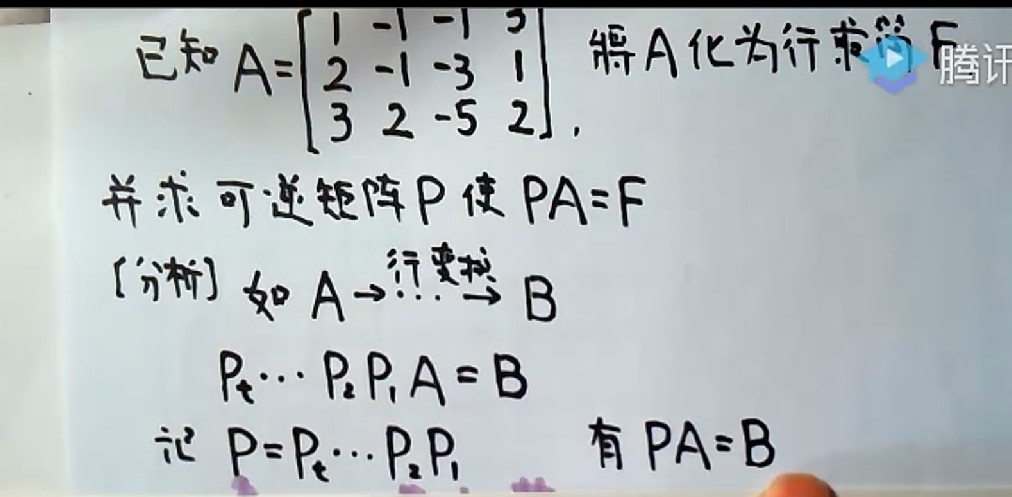 已知 A=[1 -1 -1 3
2 -1 -3 1
3 2 -5 2], 将A化为行最简F
腾讯
并求可逆矩阵P使 PA=F
[分析] 如 A→···→B
行变换
Pₜ··· P₂ P₁ A = B
记 P=Pₜ···P₂P₁ 有 PA=B